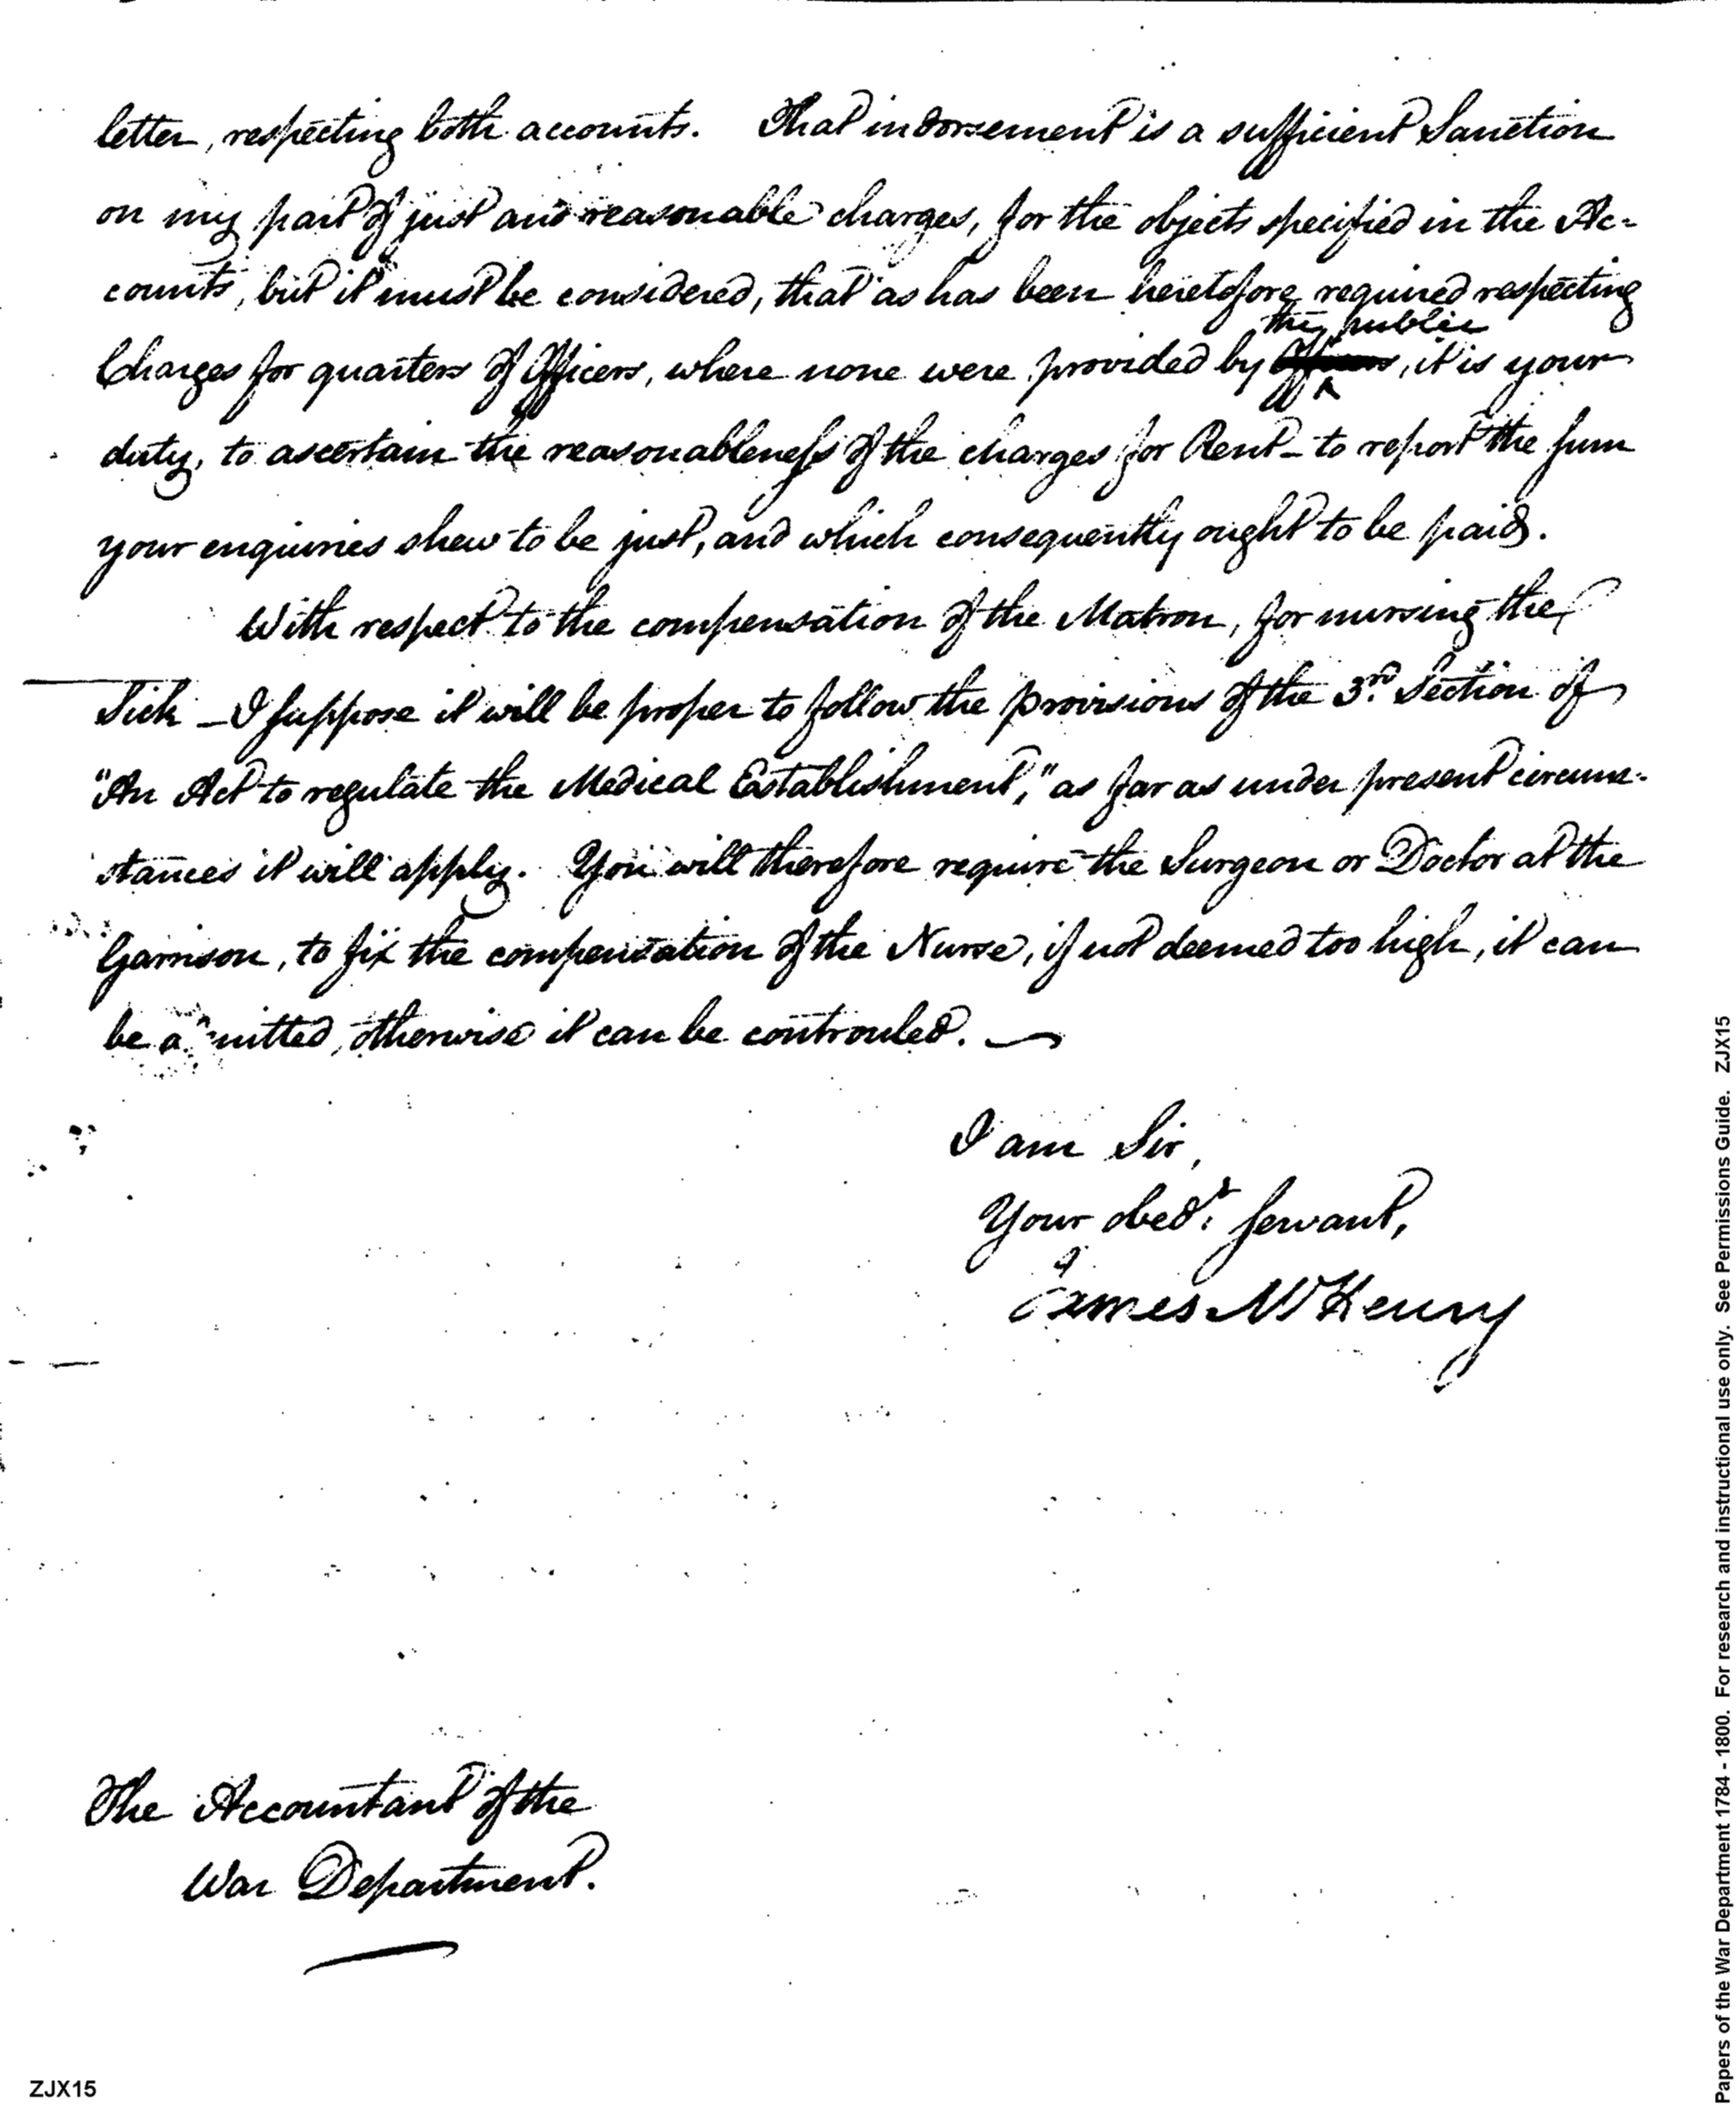 letter, respecting both accounts. That indorsement is a sufficient Sanction
on my part of just and reasonable charges, for the objects specified in the Ac-
counts, but it must be considered, that as has been heretofore required respecting
the public
Charges for quarters of Officers, where none were provided by Officers, it is your
duty, to ascertain the reasonableness of the charges for Rent - to report the sum
your enquiries shew to be just, and which consequently ought to be paid.
With respect to the compensation of the Matron, for nursing the
Sick - I suppose it will be proper to follow the provisions of the 3rd. Section of
"An Act to regulate the Medical Establishment," as far as under present circum-
stances it will apply. You will therefore require the Surgeon or Doctor at the
Garrison, to fix the compensation of the Nurse, if not deemed too high, it can
be admitted, otherwise it can be controuled.
I am Sir,
Your obedt. servant,
James McHenry
The Accountant of the
War Department.
ZJX15
Papers of the War Department 1784 - 1800. For research and instructional use only. See Permissions Guide. ZJX15